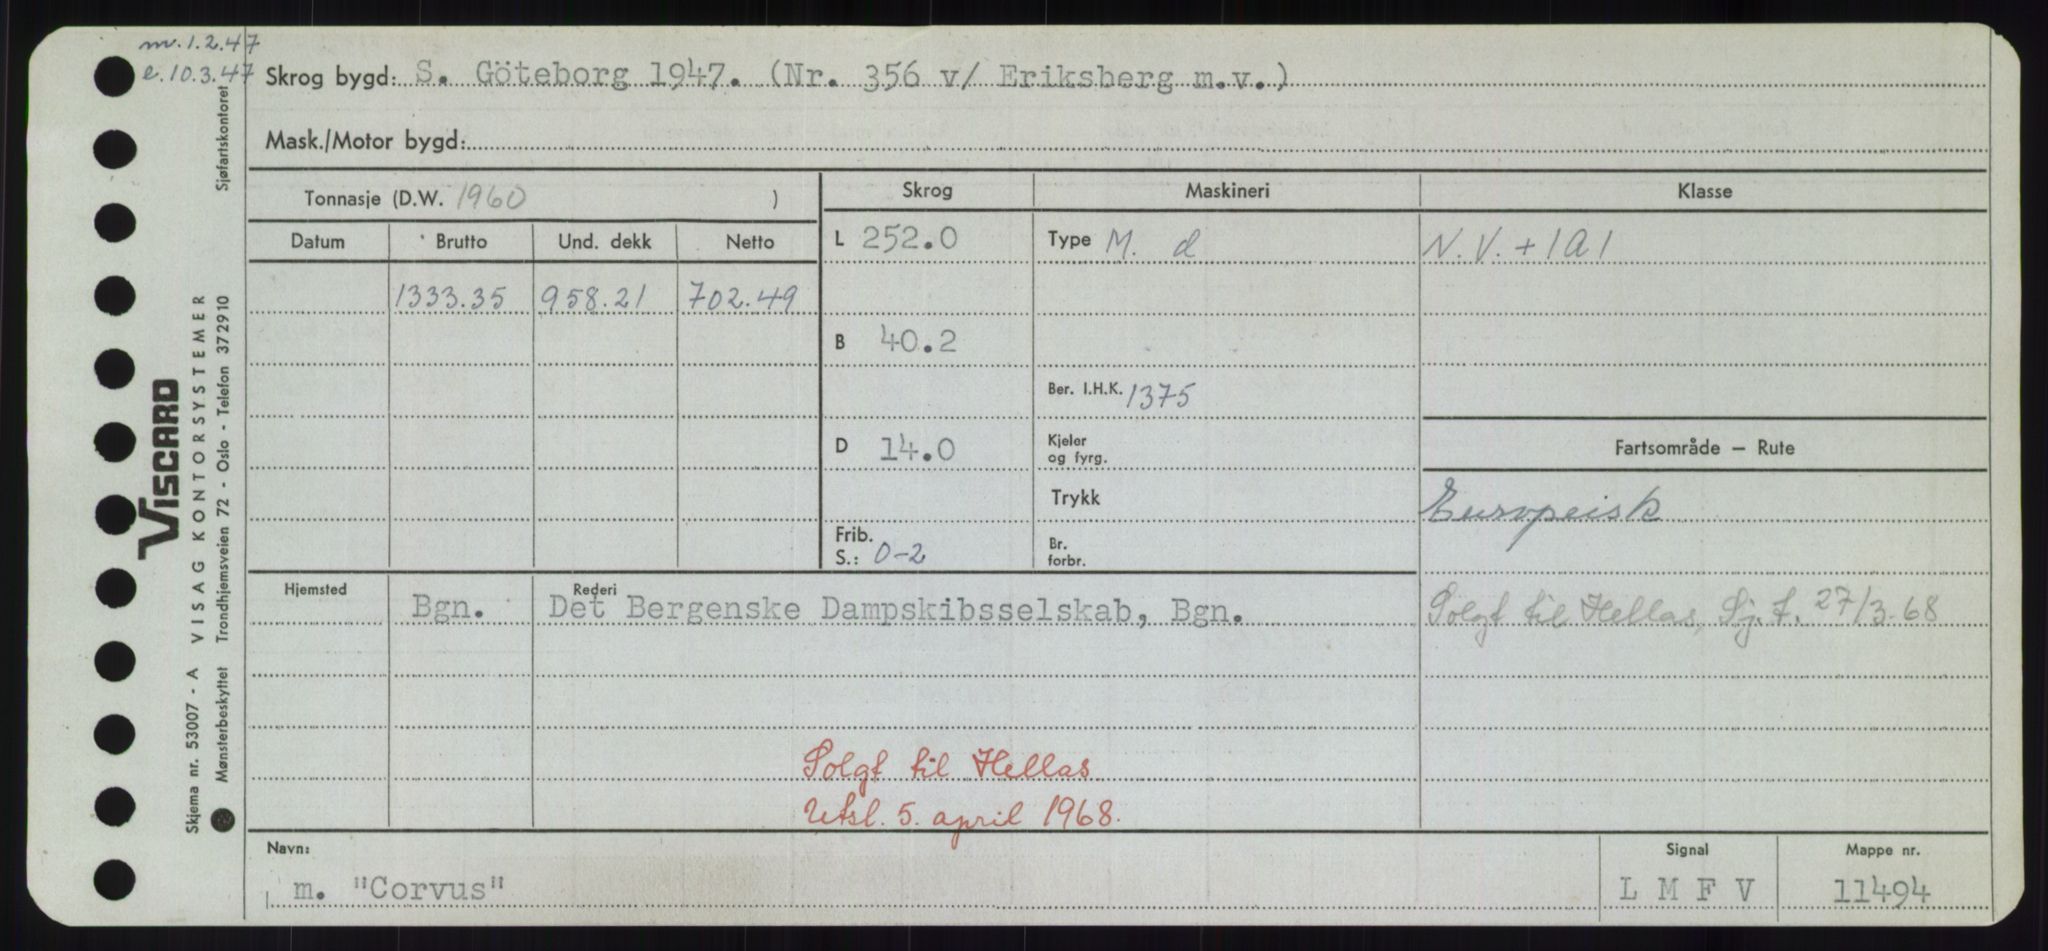 m. 1.2.47
e. 10.3.47
Skrog bygd: S. Göteborg 1947. (Nr. 356 v/ Eriksberg m.v.)
Mask./Motor bygd:
Tonnasje (D.W. 1960 )
Skrog
Maskineri
Klasse
Datum
Brutto
Und. dekk
Netto
L 252.0
Type M. d
N.V. + 1A1
1333.35
958.21
702.49
B 40.2
Ber. I.H.K. 1375
D 14.0
Kjeler
og fyrg.
Fartsområde – Rute
Trykk
Europeisk
Frib.
S.: 0-2
Br.
forbr.
Hjemsted
Rederi
Bgn.
Det Bergenske Dampskibsselskab, Bgn.
Solgt til Hellas, Sj.t. 27/3-68
Solgt til Hellas
Utsl. 5. april 1968.
Navn:
Signal
Mappe nr.
m. "Corvus"
L M F V
11494
VISCARD
VISAG KONTORSYSTEMER
Skjema nr. 53007 - A
Mønsterbeskyttet Trondhjemsveien 72 - Oslo - Telefon 372910
Sjøfartskontoret